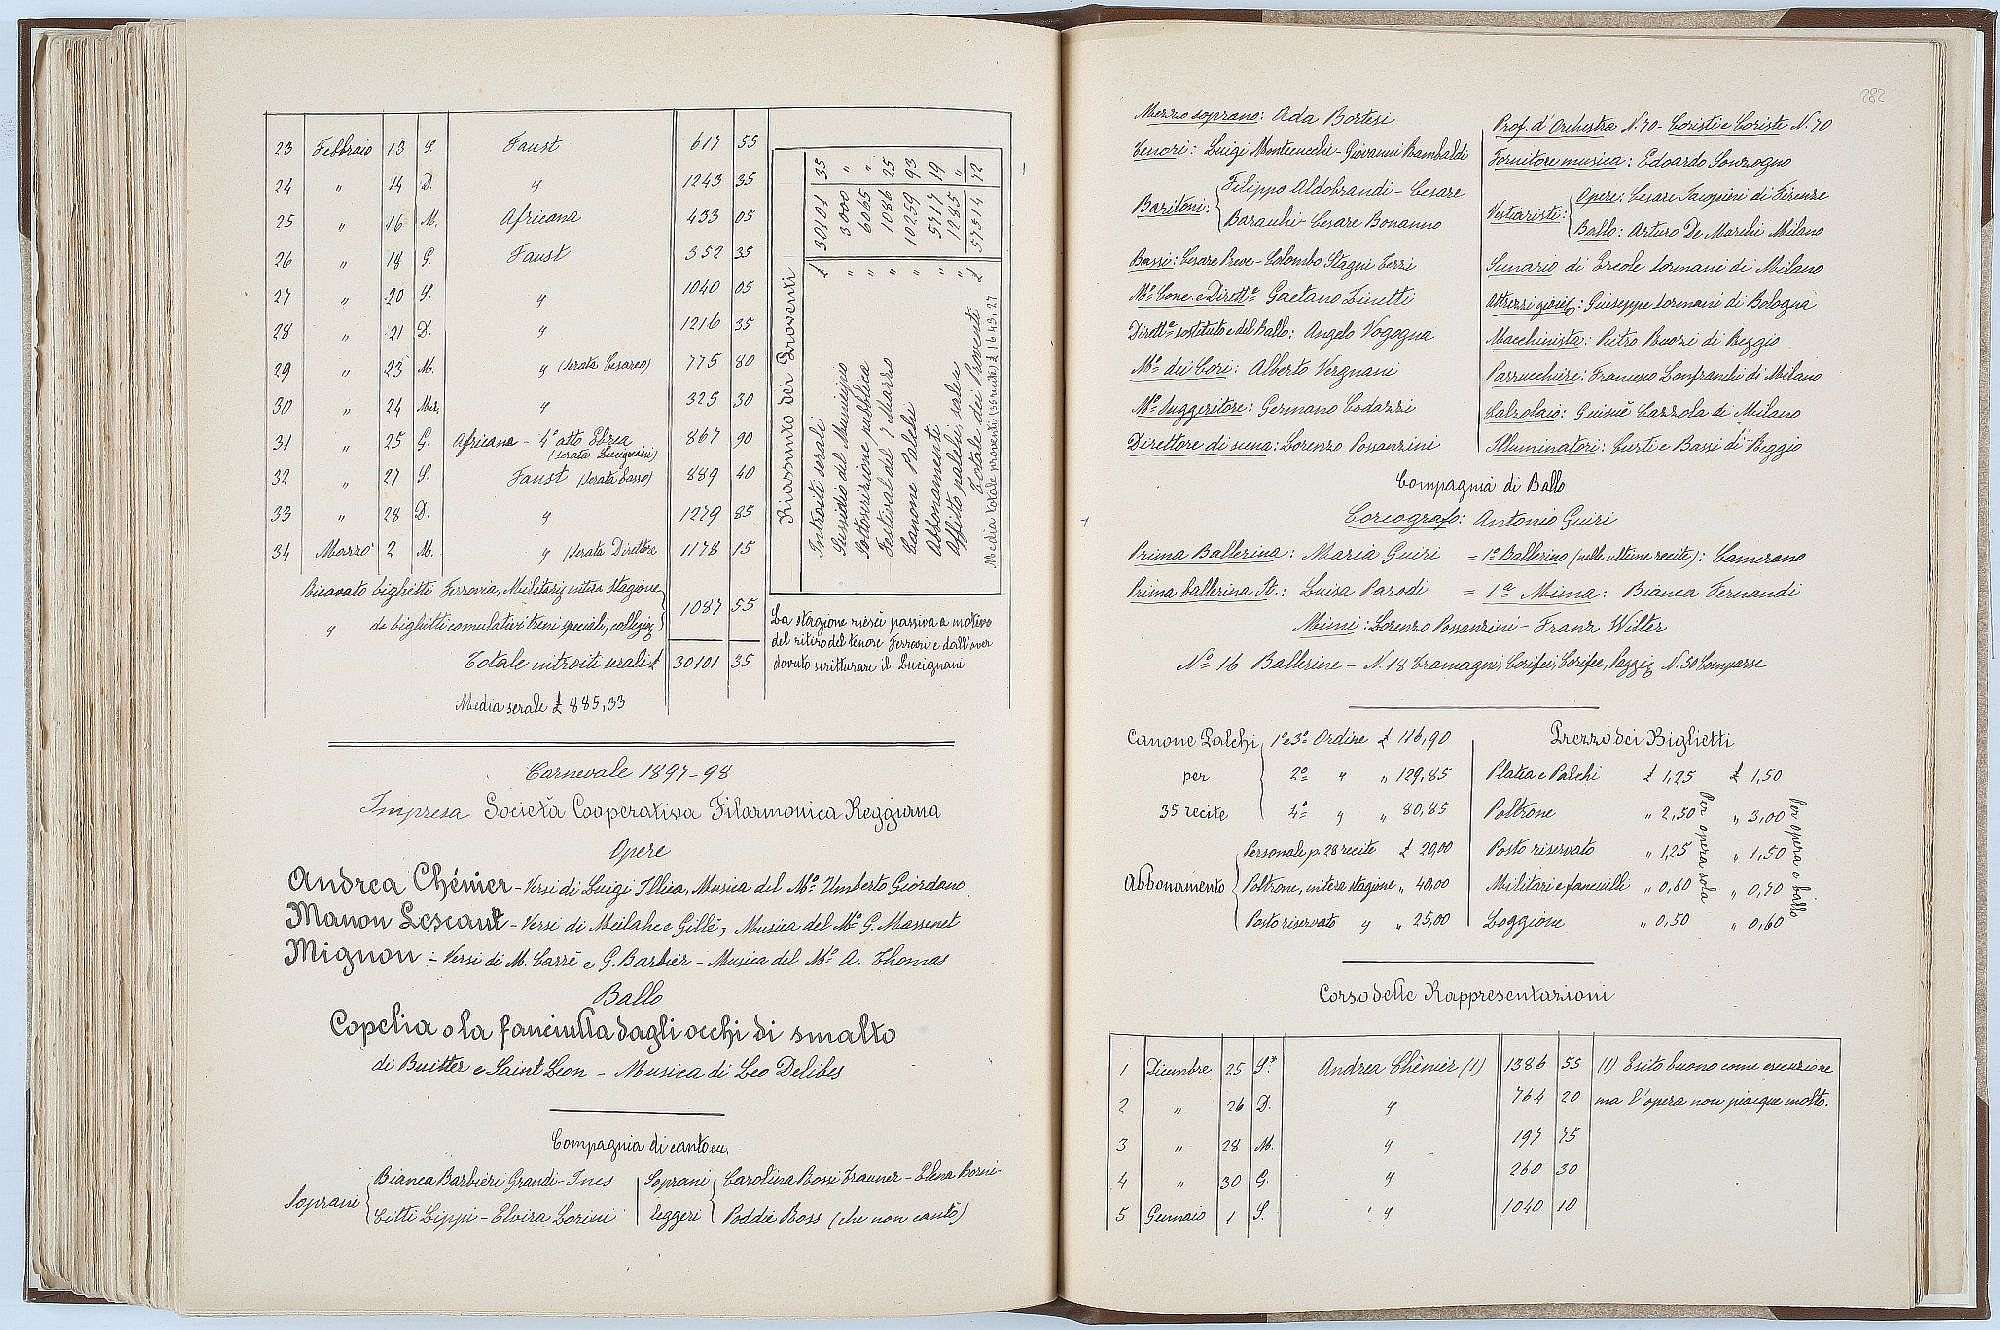 23 Febbraio 13 S. Faust 617 55
24 " 14 D. " 1243 35
25 " 16 M. Africana 433 05
26 " 18 G. Faust 352 35
27 " 20 S. " 1040 05
28 " 21 D. " 1216 35
29 " 23 M. " (serata Cesareo) 775 80
30 " 24 Mer. " 325 30
31 " 25 G. Africana - 4° atto Ebrea 867 90
(serata Lucignani)
32 " 27 S. Faust (serata Sasso) 889 40
33 " 28 D. " 1279 85
34 Marzo 2 M. " (serata Direttore 1178 15
Ricavato biglietti Ferrovia, Militari intera stagione
" da biglietti comulativi treni speciali, collegi 1087 55
Totale introiti serali £ 30101 35
Media serale £ 885,33
Riassunto dei Proventi
Introiti serali £ 30101 35
Sussidio del Municipio " 3000 "
Sottoscrizione pubblica " 6065 "
Festival del 7 Marzo " 1086 25
Canone Palchi " 10259 93
Abbonamenti " 5717 19
Affitto palchi, sale " 1285 "
Totale dei Proventi £ 57514 72
Media totale proventi £ 1643,27
La stagione riescì passiva a motivo
del ritiro del tenore Ferrari e dall'aver
dovuto scritturare il Lucignani
Carnevale 1897-98
Impresa Società Cooperativa Filarmonica Reggiana
Opere
Andrea Chénier - Versi di Luigi Illica, Musica del M° Umberto Giordano
Manon Lescaut - Versi di Meilahc e Gille, Musica del M° G. Massenet
Mignon - Versi di M. Carrè e G. Barbier - Musica del M° A. Thomas
Ballo
Copelia o la fanciulla dagli occhi di smalto
di Buitter e Saint Leon - Musica di Leo Delibes
Compagnia di canto
Soprani Bianca Barbieri Grandi - Ines
Citti Lippi - Elvira Lorini
Soprani leggeri Carolina Rossi Trauner - Elena Borni-
Poddie Ross (che non cantò)
282
Mezzo soprano: Ada Bortesi
Tenori: Luigi Montecucchi - Giovanni Rambaldi
Baritoni: Filippo Aldobrandi - Cesare
Barauchi - Cesare Bonanno
Bassi: Cesare Preve - Colombo Stagni Terzi
M° Conc. e Dirett.e Gaetano Zinetti
Dirett.e sostituto e del Ballo: Angelo Vogogna
M° dei Cori: Alberto Vergnani
M° Suggeritore: Germano Codazzi
Direttore di scena: Lorenzo Possanzini
Prof. d'Orchestra N. 70 - Coristi e Coriste N. 70
Fornitore musica: Edoardo Sonzogno
Vestiaristi: Opere: Cesare Jacopini di Firenze
Ballo: Arturo De Marchi Milano
Scenario di Ercole Sormani di Milano
Attrezzi gioiell: Giuseppe Sormani di Bologna
Macchinista: Pietro Buozi di Reggio
Parrucchiere: Francesco Lanfranchi di Milano
Calzolaio: Giosuè Cazzola di Milano
Illuminatori: Curti e Bassi di Reggio
Compagnia di Ballo
Coreografo: Antonio Guiri
Prima Ballerina: Maria Guiri = 1° Ballerino (nelle ultime recite): Camerano
Prima ballerina It.: Luisa Parodi = 1a Mima: Bianca Fernandi
Mimi: Lorenzo Possanzini - Franz Wilter
N° 16 Ballerine - N. 18 Tramagni, Corifei, Corifee, Paggi, N. 50 Comparse
Canone Palchi per 35 recite
1° e 3° Ordine £ 116,90
2° " " 129,85
4° " " 80,85
Abbonamento
Personale p. 28 recite £ 20,00
Poltrone, intera stagione " 40,00
Posto riservato " " 25,00
Prezzo dei Biglietti
Platea e Palchi £ 1,25 £ 1,50
Poltrone " 2,50 " 3,00
Posto riservato " 1,25 " 1,50
Militari e fanciulli " 0,60 " 0,70
Loggione " 0,50 " 0,60
Per opera sola
Per opera e ballo
Corso delle Rappresentazioni
1 Dicembre 25 S. Andrea Chènier (1) 1386 55 (1) Esito buono come esecuzione
2 " 26 D. " 764 20 ma l'opera non piacque molto.
3 " 28 M. " 197 75
4 " 30 G. " 260 30
5 Gennaio 1 S. " 1040 10